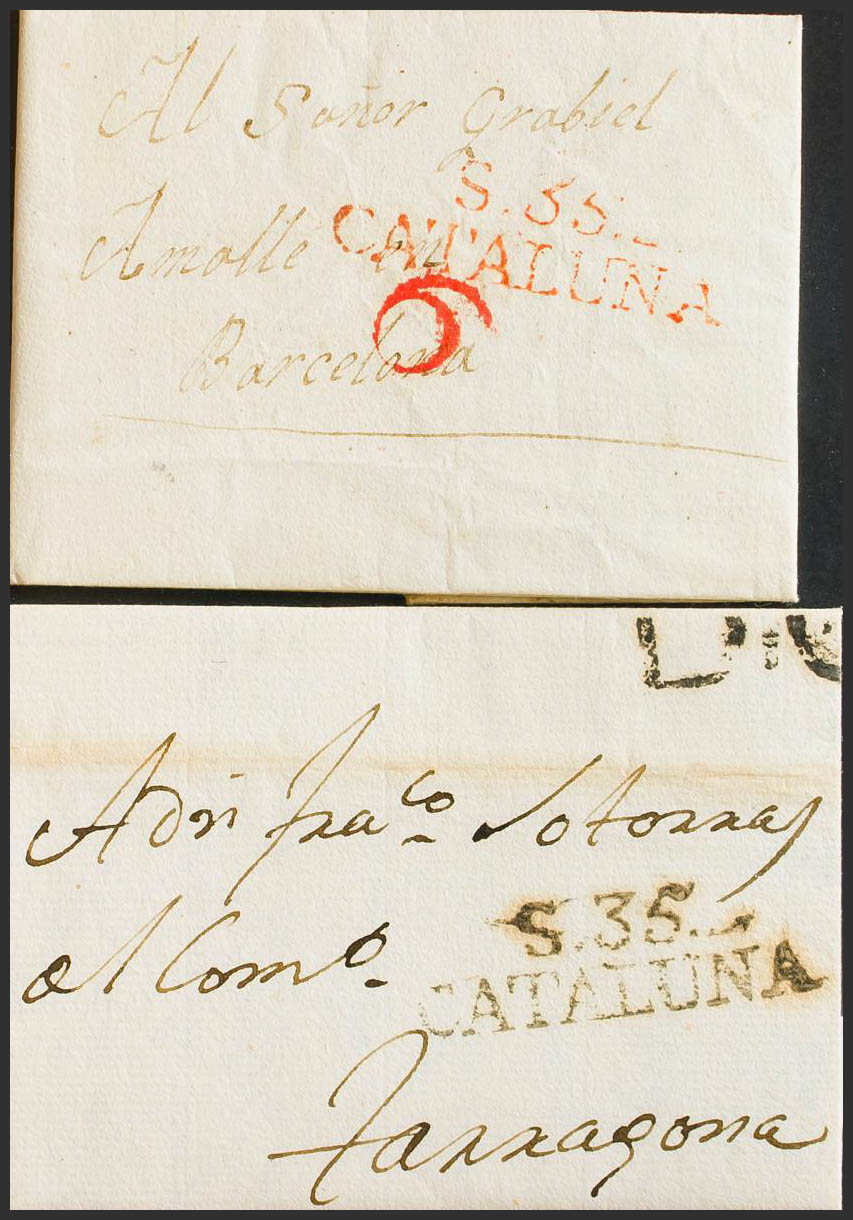 Al Señor Grabiel
S. 35.
Amallé en
CATALUNA
6
Barcelona
A Dn Franco Sotorras
S.35.
el Como.
CATALUNA
Tarragona